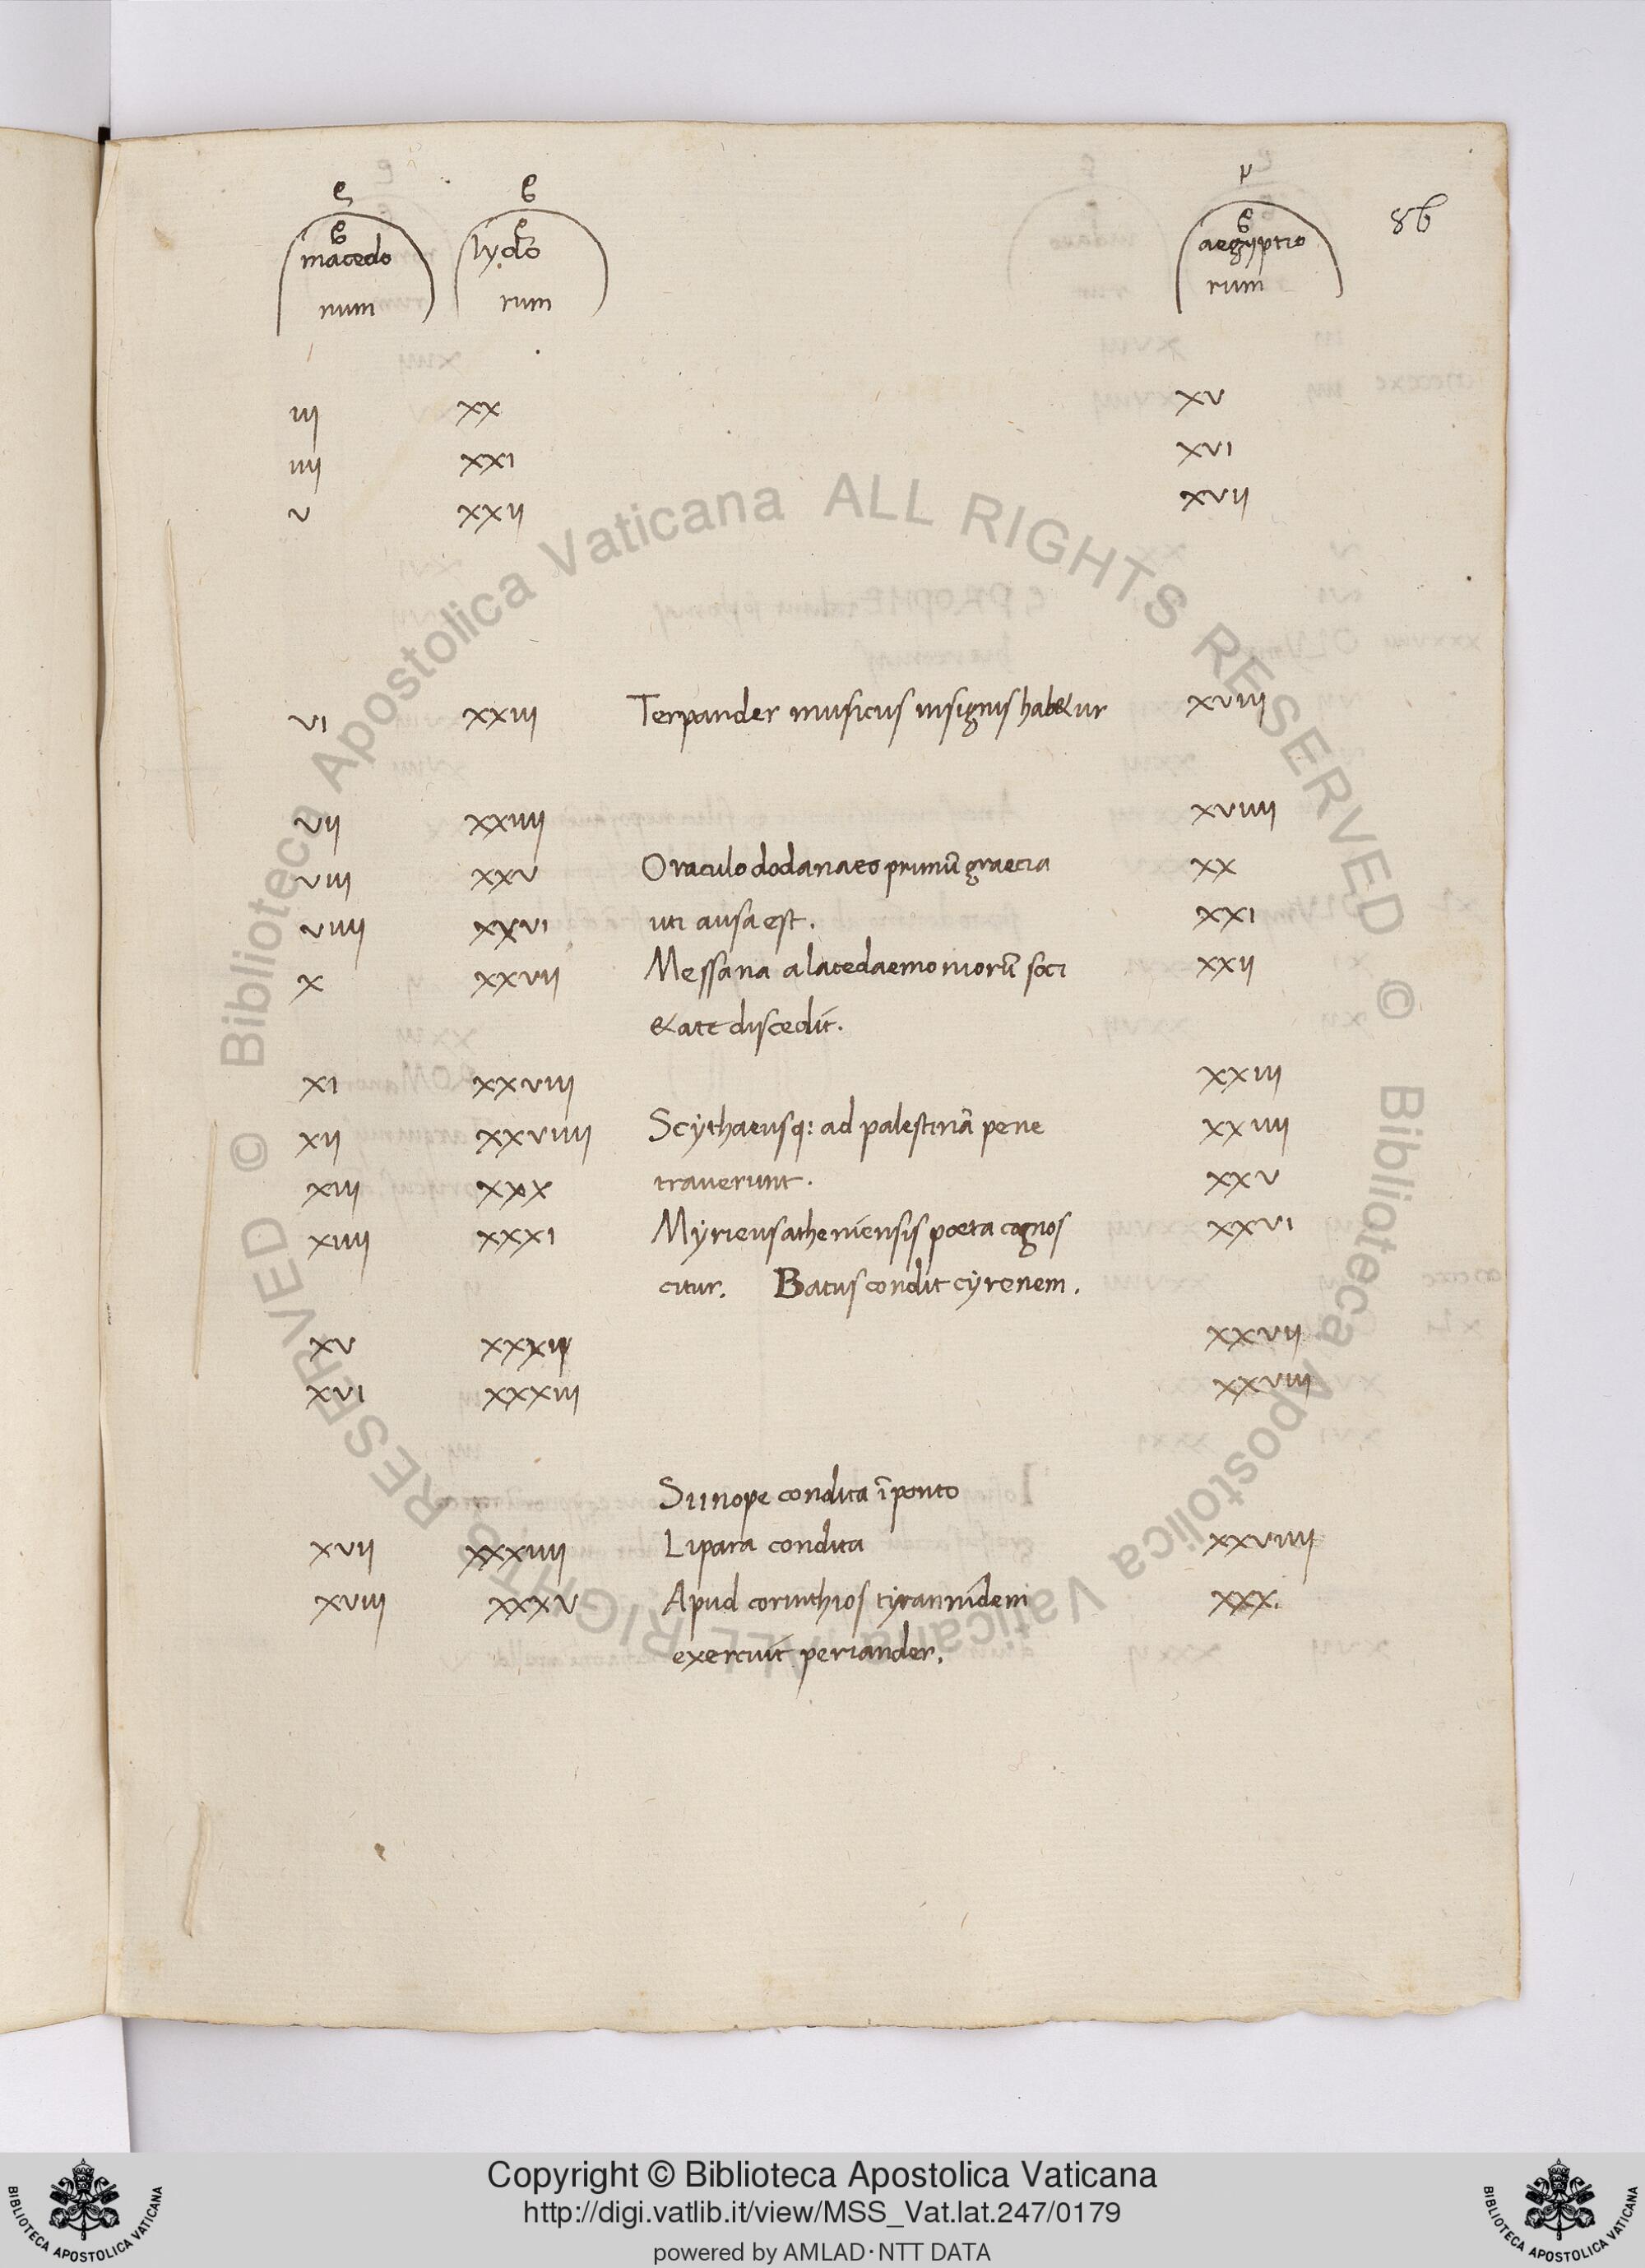 86
macedo lydo aegyptio
num rum rum
iij xx xv
iiij xxi xvi
v xxij xvij
vi xxiij Terpander musicus insignis hab&ur xviij
vij xxiiij xviiij
viij xxv Oraculo dodanaeo primū graecia xx
viiij xxvi uti ausa est. xxi
x xxvij Messana a lacedaemoniorū soci xxij
&ate discedit.
xi xxviij xxiij
xij xxviiij Scythaeusq: ad palestinā pene xxiiij
xiij xxx trauerunt. xxv
xiiij xxxi Myrieus atheniensis poeta cognos xxvi
citur. Batus condit cyrenem.
xv xxxij xxvij
xvi xxxiij xxviij
Siinope condita ī ponto
xvij xxxiiij Lipara condita xxviiij
xviij xxxv Apud corinthios tyrannidem xxx.
exercuit periander.
© Biblioteca Apostolica Vaticana ALL RIGHTS RESERVED © Biblioteca Apostolica Vaticana ALL RIGHTS RESERVED
Copyright © Biblioteca Apostolica Vaticana
http://digi.vatlib.it/view/MSS_Vat.lat.247/0179
powered by AMLAD·NTT DATA
BIBLIOTECA APOSTOLICA VATICANA
BIBLIOTECA APOSTOLICA VATICANA